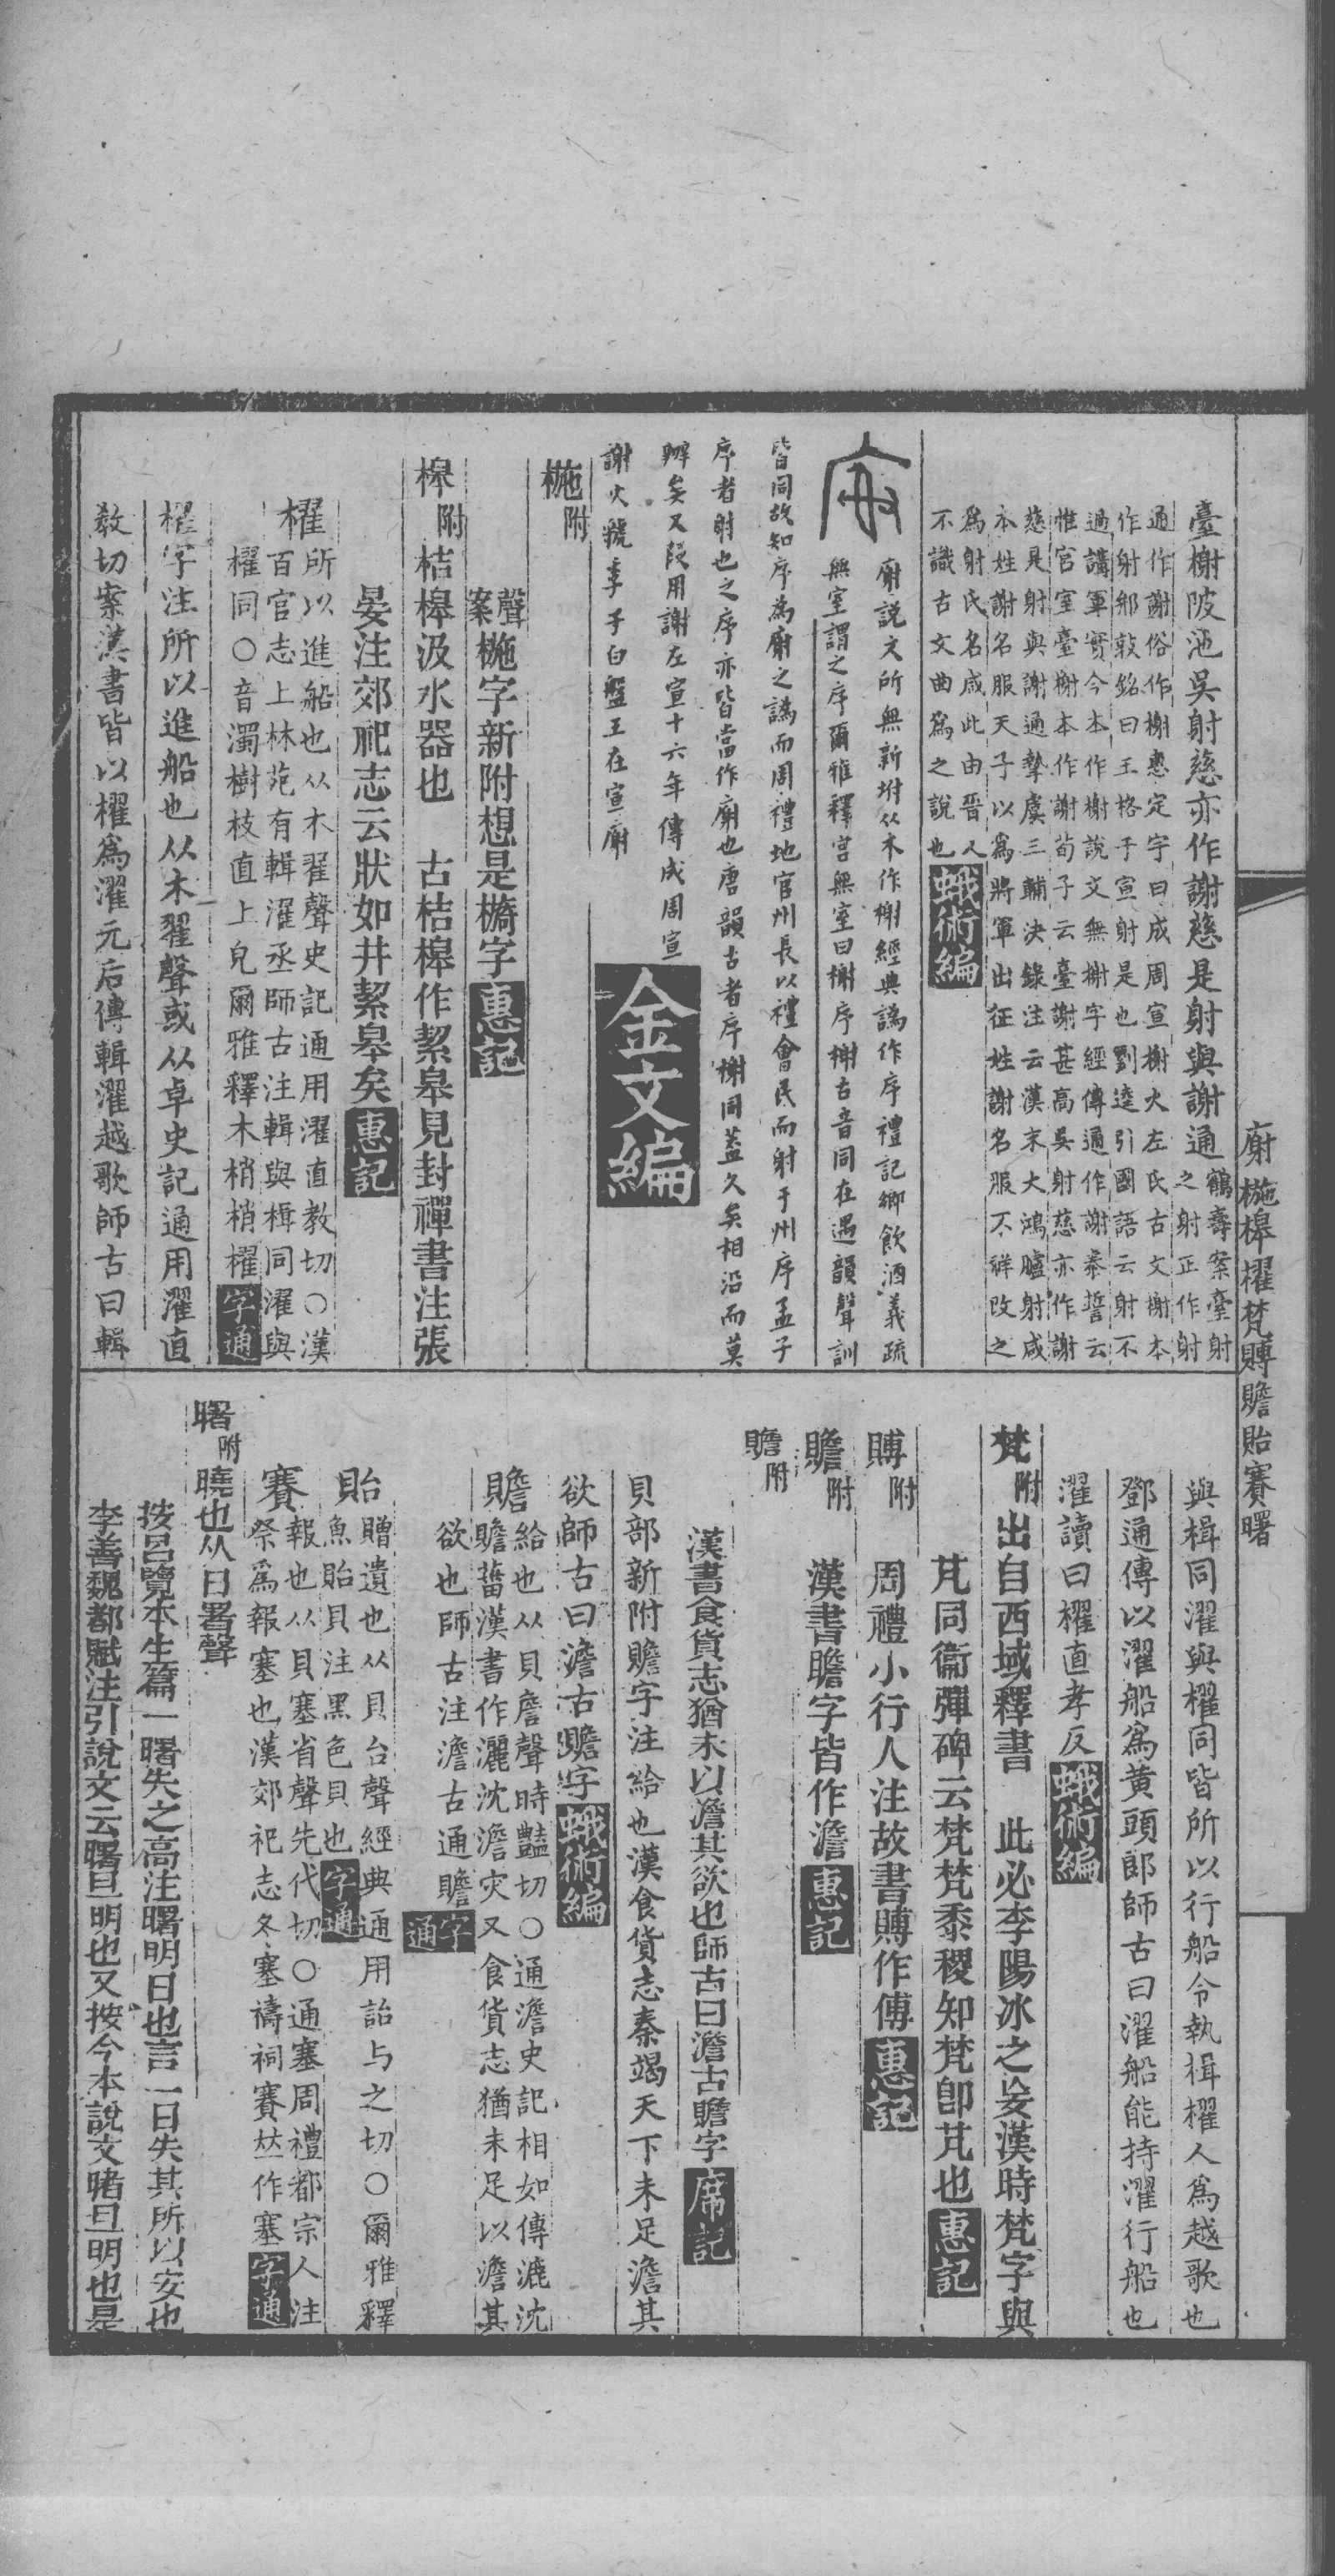 廟㮛槔櫂梵賻贍貽賽曙
臺榭陂池吳射慈亦作謝慈是射與謝通鶴壽案臺射
之射正作射
通作謝俗作榭惠定宇曰成周宣榭火左氏古文榭本
作射䣄敦銘曰王格于宣射是也劉逵引國語云射不
過講軍實今本作榭說文無榭字經傳通作謝泰誓云
惟宮室臺榭本作謝荀子云臺謝甚高吳射慈亦作謝
慈是射與謝通摯虞三輔決錄注云漢末大鴻臚射咸
本姓謝名服天子以爲將軍出征姓謝名服不祥改之
爲射氏名咸此由晉人
不識古文曲爲之說也蛾術編
廟說文所無新坿从木作榭經典譌作序禮記鄉飲酒義疏
無室謂之序爾雅釋宮無室曰榭序榭古音同在遇韻聲訓
皆同故知序爲廟之譌而周禮地官州長以禮會民而射于州序孟子
序者射也之序亦皆當作廟也唐韻古者序榭同蓋久矣相沿而莫
辨矣又叚用謝左宣十六年傳成周宣
謝火虢季子白盤王在宣廟
金文編
㮛附
聲案㮛字新附想是檹字惠記
槔附桔槔汲水器也　古桔槔作絜皋見封禪書注張
晏注郊祀志云狀如井絜皋矣惠記
櫂所以進船也从木翟聲史記通用濯直教切○漢
百官志上林苑有輯濯丞師古注輯與楫同濯與
櫂同○音濁樹枝直上見爾雅釋木梢梢櫂字通
櫂字注所以進船也从木翟聲或从卓史記通用濯直
教切案漢書皆以櫂爲濯元后傳輯濯越歌師古曰輯
與楫同濯與櫂同皆所以行船令執楫櫂人爲越歌也
鄧通傳以濯船爲黃頭郎師古曰濯船能持濯行船也
濯讀曰櫂直孝反蛾術編
梵附出自西域釋書　此必李陽冰之妄漢時梵字與
芃同衞彈碑云梵梵黍稷知梵卽芃也惠記
賻附　周禮小行人注故書賻作傅惠記
贍附　漢書贍字皆作澹惠記
贍附
漢書食貨志猶未以澹其欲也師古曰澹古贍字席記
貝部新附贍字注給也漢食貨志秦竭天下未足澹其
欲師古曰澹古贍字蛾術編
贍給也从貝詹聲時豔切○通澹史記相如傳漉沈
贍菑漢書作灑沈澹灾又食貨志猶未足以澹其
欲也師古注澹古通贍字通
貽贈遺也从貝台聲經典通用詒与之切○爾雅釋
魚貽貝注黑色貝也字通
賽報也从貝塞省聲先代切○通塞周禮都宗人注
祭爲報塞也漢郊祀志冬塞禱祠賽㠭作塞字通
曙附曉也从日署聲
按呂覽本生篇一曙失之高注曙明日也言一日失其所以安也
李善魏都賦注引說文云曙旦明也又按今本說文睹旦明也是